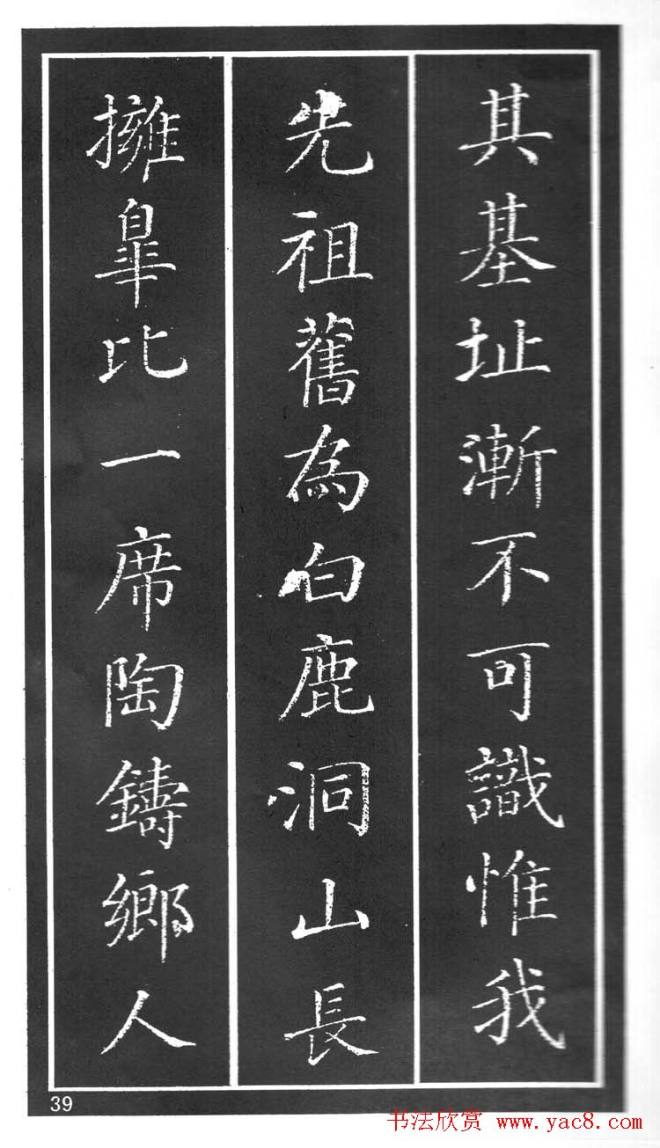 其基址漸不可識惟我
先祖舊為白鹿洞山長
擁臯比一席陶鑄鄉人
39
书法欣赏 www.yac8.com